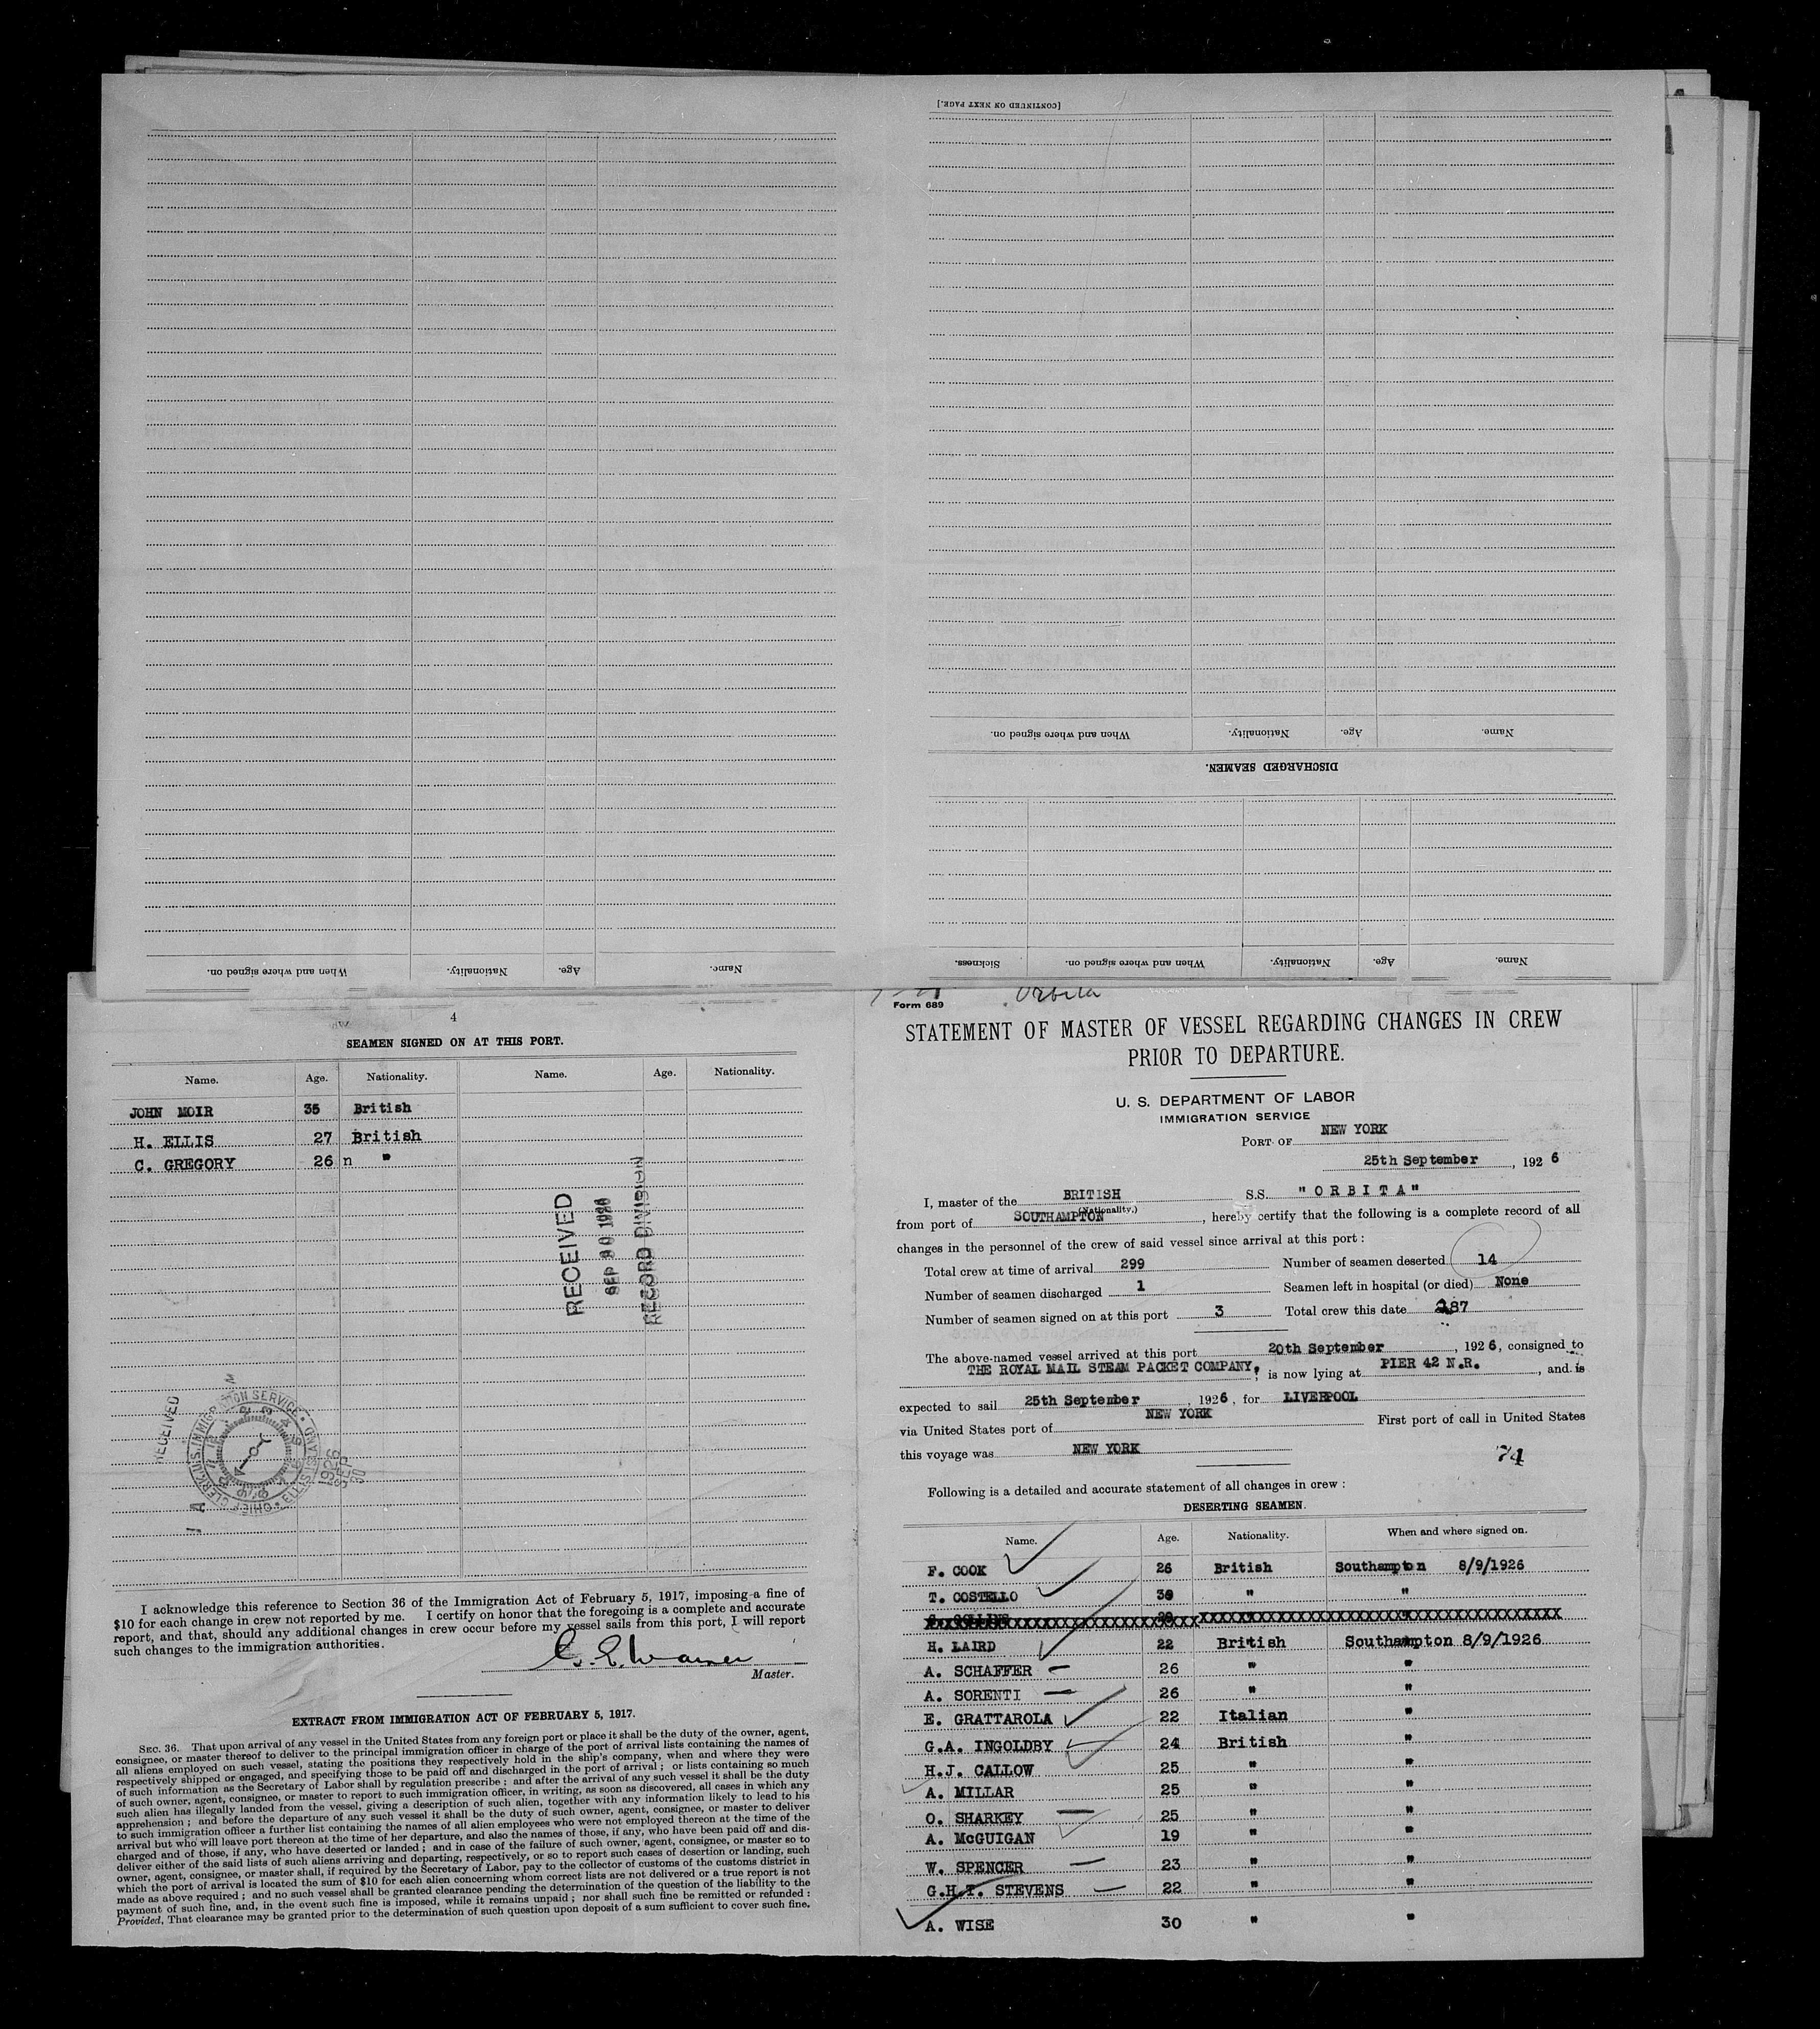 [CONTINUED ON NEXT PAGE.]
When and where signed on. Nationality. Age. Name.
DISCHARGED SEAMEN.
Sickness. When and where signed on. Nationality. Age. Name.
When and where signed on. Nationality. Age. Name.
4
SEAMEN SIGNED ON AT THIS PORT.
Name. Age. Nationality. Name. Age. Nationality.
JOHN MOIR 35 British
H. ELLIS 27 British
C. GREGORY 26 n "
RECEIVED
SEP 30 1926
RECORD DIVISION
RECEIVED
CHIEF CLERK U.S. IMMIGRATION SERVICE · ELLIS ISLAND
1926
SEP
30
I acknowledge this reference to Section 36 of the Immigration Act of February 5, 1917, imposing a fine of
$10 for each change in crew not reported by me. I certify on honor that the foregoing is a complete and accurate
report, and that, should any additional changes in crew occur before my vessel sails from this port, I will report
such changes to the immigration authorities.
Master.
EXTRACT FROM IMMIGRATION ACT OF FEBRUARY 5, 1917.
SEC. 36. That upon arrival of any vessel in the United States from any foreign port or place it shall be the duty of the owner, agent,
consignee, or master thereof to deliver to the principal immigration officer in charge of the port of arrival lists containing the names of
all aliens employed on such vessel, stating the positions they respectively hold in the ship's company, when and where they were
respectively shipped or engaged, and specifying those to be paid off and discharged in the port of arrival; or lists containing so much
of such information as the Secretary of Labor shall by regulation prescribe; and after the arrival of any such vessel it shall be the duty
of such owner, agent, consignee, or master to report to such immigration officer, in writing, as soon as discovered, all cases in which any
such alien has illegally landed from the vessel, giving a description of such alien, together with any information likely to lead to his
apprehension; and before the departure of any such vessel it shall be the duty of such owner, agent, consignee, or master to deliver
to such immigration officer a further list containing the names of all alien employees who were not employed thereon at the time of the
arrival but who will leave port thereon at the time of her departure, and also the names of those, if any, who have been paid off and dis-
charged and of those, if any, who have deserted or landed; and in case of the failure of such owner, agent, consignee, or master so to
deliver either of the said lists of such aliens arriving and departing, respectively, or so to report such cases of desertion or landing, such
owner, agent, consignee, or master shall, if required by the Secretary of Labor, pay to the collector of customs of the customs district in
which the port of arrival is located the sum of $10 for each alien concerning whom correct lists are not delivered or a true report is not
made as above required; and no such vessel shall be granted clearance pending the determination of the question of the liability to the
payment of such fine, and, in the event such fine is imposed, while it remains unpaid; nor shall such fine be remitted or refunded:
Provided, That clearance may be granted prior to the determination of such question upon deposit of a sum sufficient to cover such fine.
Orbita
Form 689
STATEMENT OF MASTER OF VESSEL REGARDING CHANGES IN CREW
PRIOR TO DEPARTURE.
U. S. DEPARTMENT OF LABOR
IMMIGRATION SERVICE
PORT OF NEW YORK
25th September, 1926
I, master of the BRITISH S.S. "ORBITA"
(Nationality.)
from port of SOUTHAMPTON, hereby certify that the following is a complete record of all
changes in the personnel of the crew of said vessel since arrival at this port:
Total crew at time of arrival 299 Number of seamen deserted 14
Number of seamen discharged 1 Seamen left in hospital (or died) None
Number of seamen signed on at this port 3 Total crew this date 287
The above-named vessel arrived at this port 20th September, 1926, consigned to
THE ROYAL MAIL STEAM PACKET COMPANY, is now lying at PIER 42 N.R., and is
expected to sail 25th September, 1926, for LIVERPOOL
via United States port of NEW YORK First port of call in United States
this voyage was NEW YORK
74
Following is a detailed and accurate statement of all changes in crew:
DESERTING SEAMEN.
Name. Age. Nationality. When and where signed on.
F. COOK 26 British Southampton 8/9/1926
T. COSTELLO 30 " "
H. LAIRD 22 British Southampton 8/9/1926
A. SCHAFFER 26 " "
A. SORENTI 26 " "
E. GRATTAROLA 22 Italian "
G.A. INGOLDBY 24 British "
H.J. CALLOW 25 " "
A. MILLAR 25 " "
O. SHARKEY 25 " "
A. McGUIGAN 19 " "
W. SPENCER 23 " "
G.H.T. STEVENS 22 " "
A. WISE 30 " "